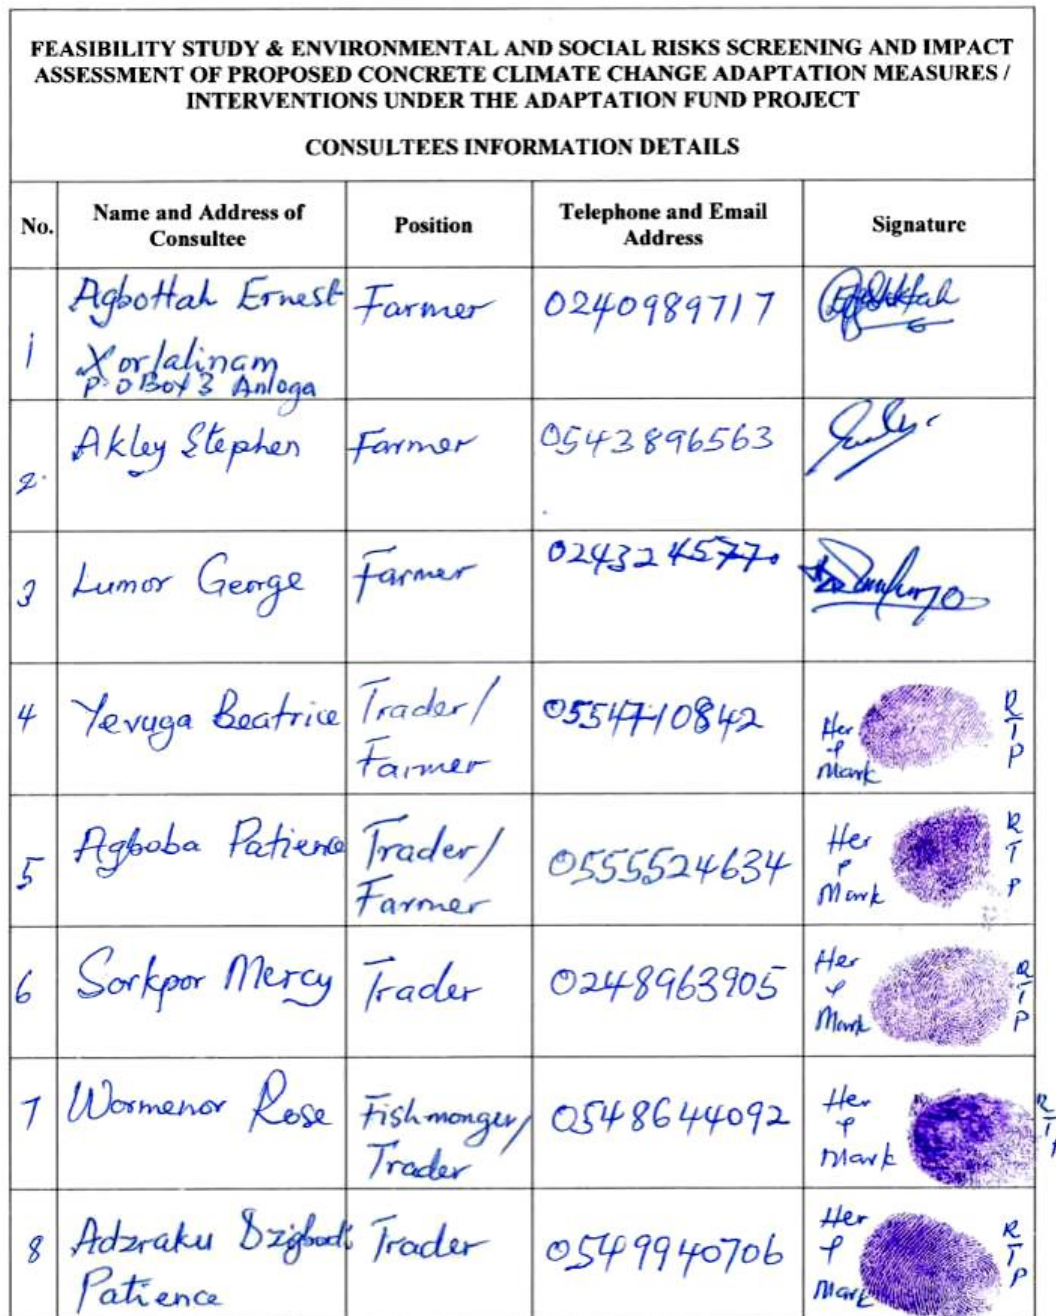 FEASIBILITY STUDY & ENVIRONMENTAL AND SOCIAL RISKS SCREENING AND IMPACT
ASSESSMENT OF PROPOSED CONCRETE CLIMATE CHANGE ADAPTATION MEASURES /
INTERVENTIONS UNDER THE ADAPTATION FUND PROJECT
CONSULTEES INFORMATION DETAILS
No. Name and Address of Consultee Position Telephone and Email Address Signature
1 Agbottah Ernest Farmer 0240989717
Xorlalinam
P O Box 3 Anloga
2. Akley Stephen Farmer 0543896563
3 Lumor George Farmer 0243245770
4 Yevuga Beatrice Trader/ 0554710842 Her Mark R T P
Farmer
5 Agboba Patience Trader/ 0555524634 Her Mark R T P
Farmer
6 Sorkpor Mercy Trader 0248963905 Her Mark R T P
7 Wormenor Rose Fishmonger/ 0548644092 Her Mark R T P
Trader
8 Adzraku Trader 0549940706 Her Mark R T P
Patience